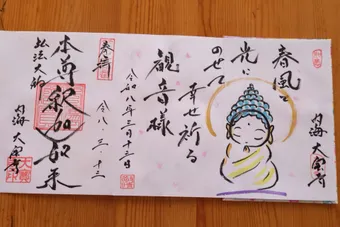 春風と
光に
のせて
幸せ祈る
観音様
令和八年三月十三日
内海 大宝寺
奉拝
令八・三・十三
本尊 釈迦如来
弘法大師
内海 大宝寺